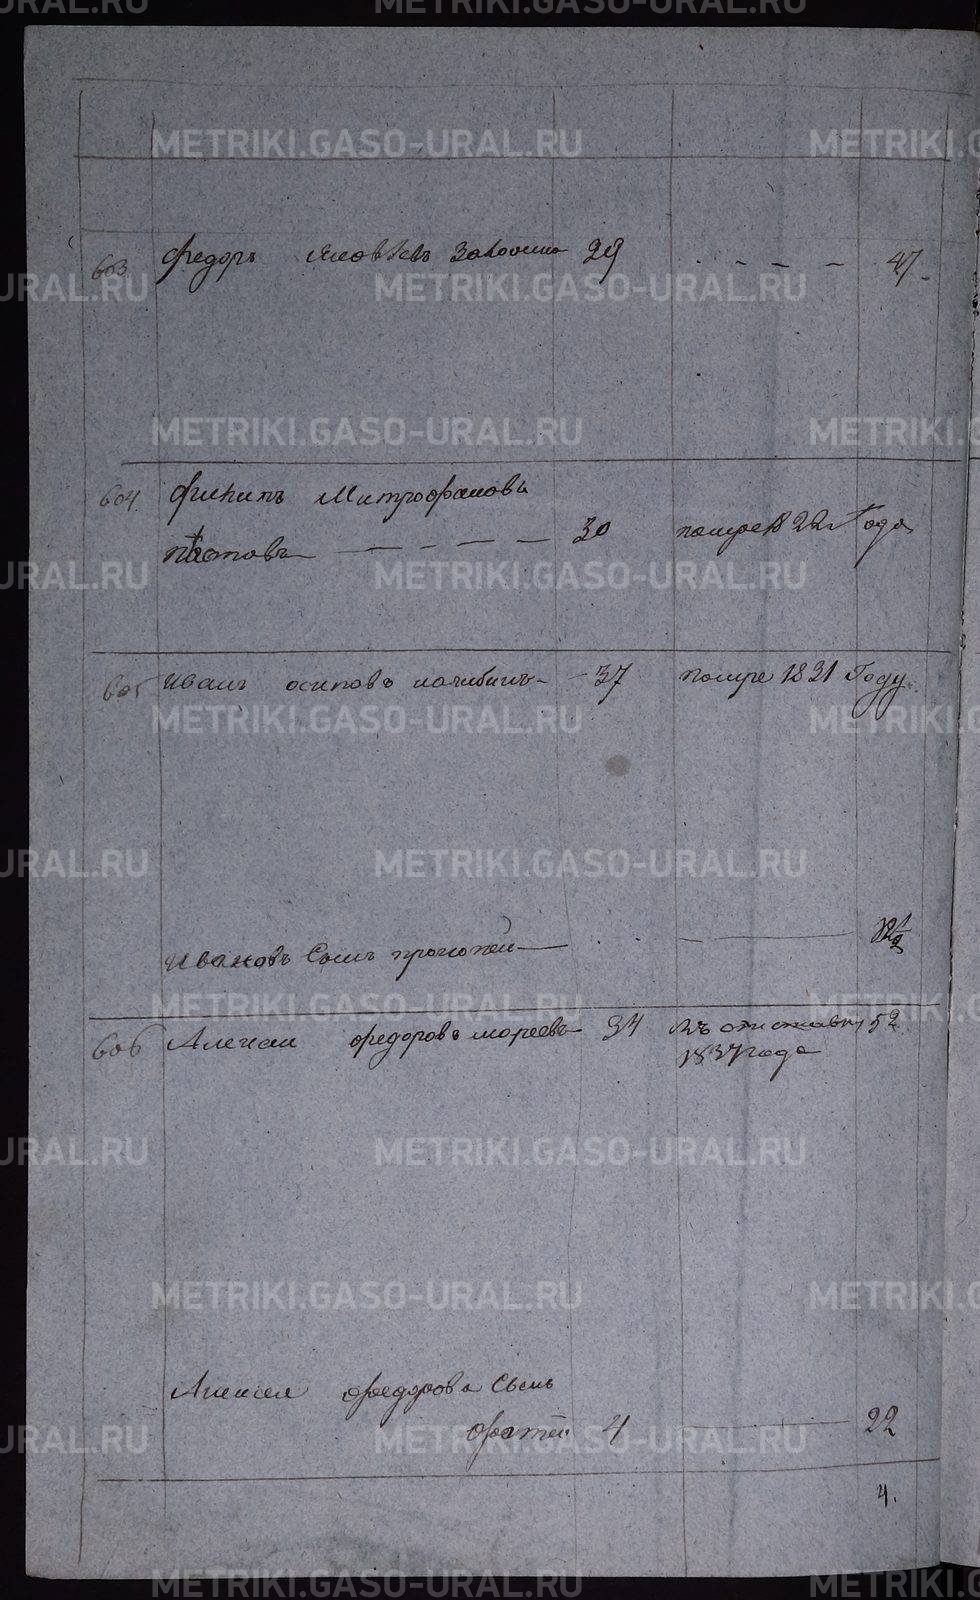 METRIKI.GASO-URAL.RU
603 Федоръ Яковлевъ 29 - - - 47
604. Филипъ Митрофановъ
30 помре 1822 Года
605 Иванъ осиповъ 37 помре 1831 Году
Ивановъ Сынъ прокопей 12½
606 Алексей федоровъ мореевъ 34 Въ отставку 52
1837 года
Алексея федорова Сынъ
фатей 4 22
4.